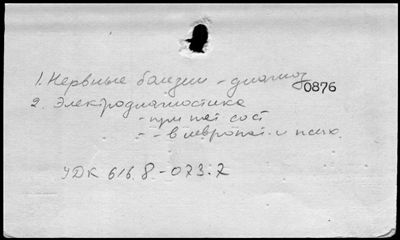 1. Нервные болезни - диагноз
0876
2. Электродиагностика
- при пат сост
- - в невропат. и псих.
УДК 616.8.-073.7